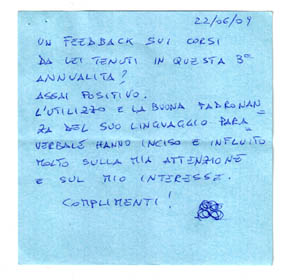 22/06/09
UN FEEDBACK SUI CORSI
DA LEI TENUTI IN QUESTA 3ª
ANNUALITÀ?
ASSAI POSITIVO.
L'UTILIZZO E LA BUONA PADRONAN=
ZA DEL SUO LINGUAGGIO PARA=
VERBALE HANNO INCISO E INFLUITO
MOLTO SULLA MIA ATTENZIONE
E SUL MIO INTERESSE.
COMPLIMENTI!